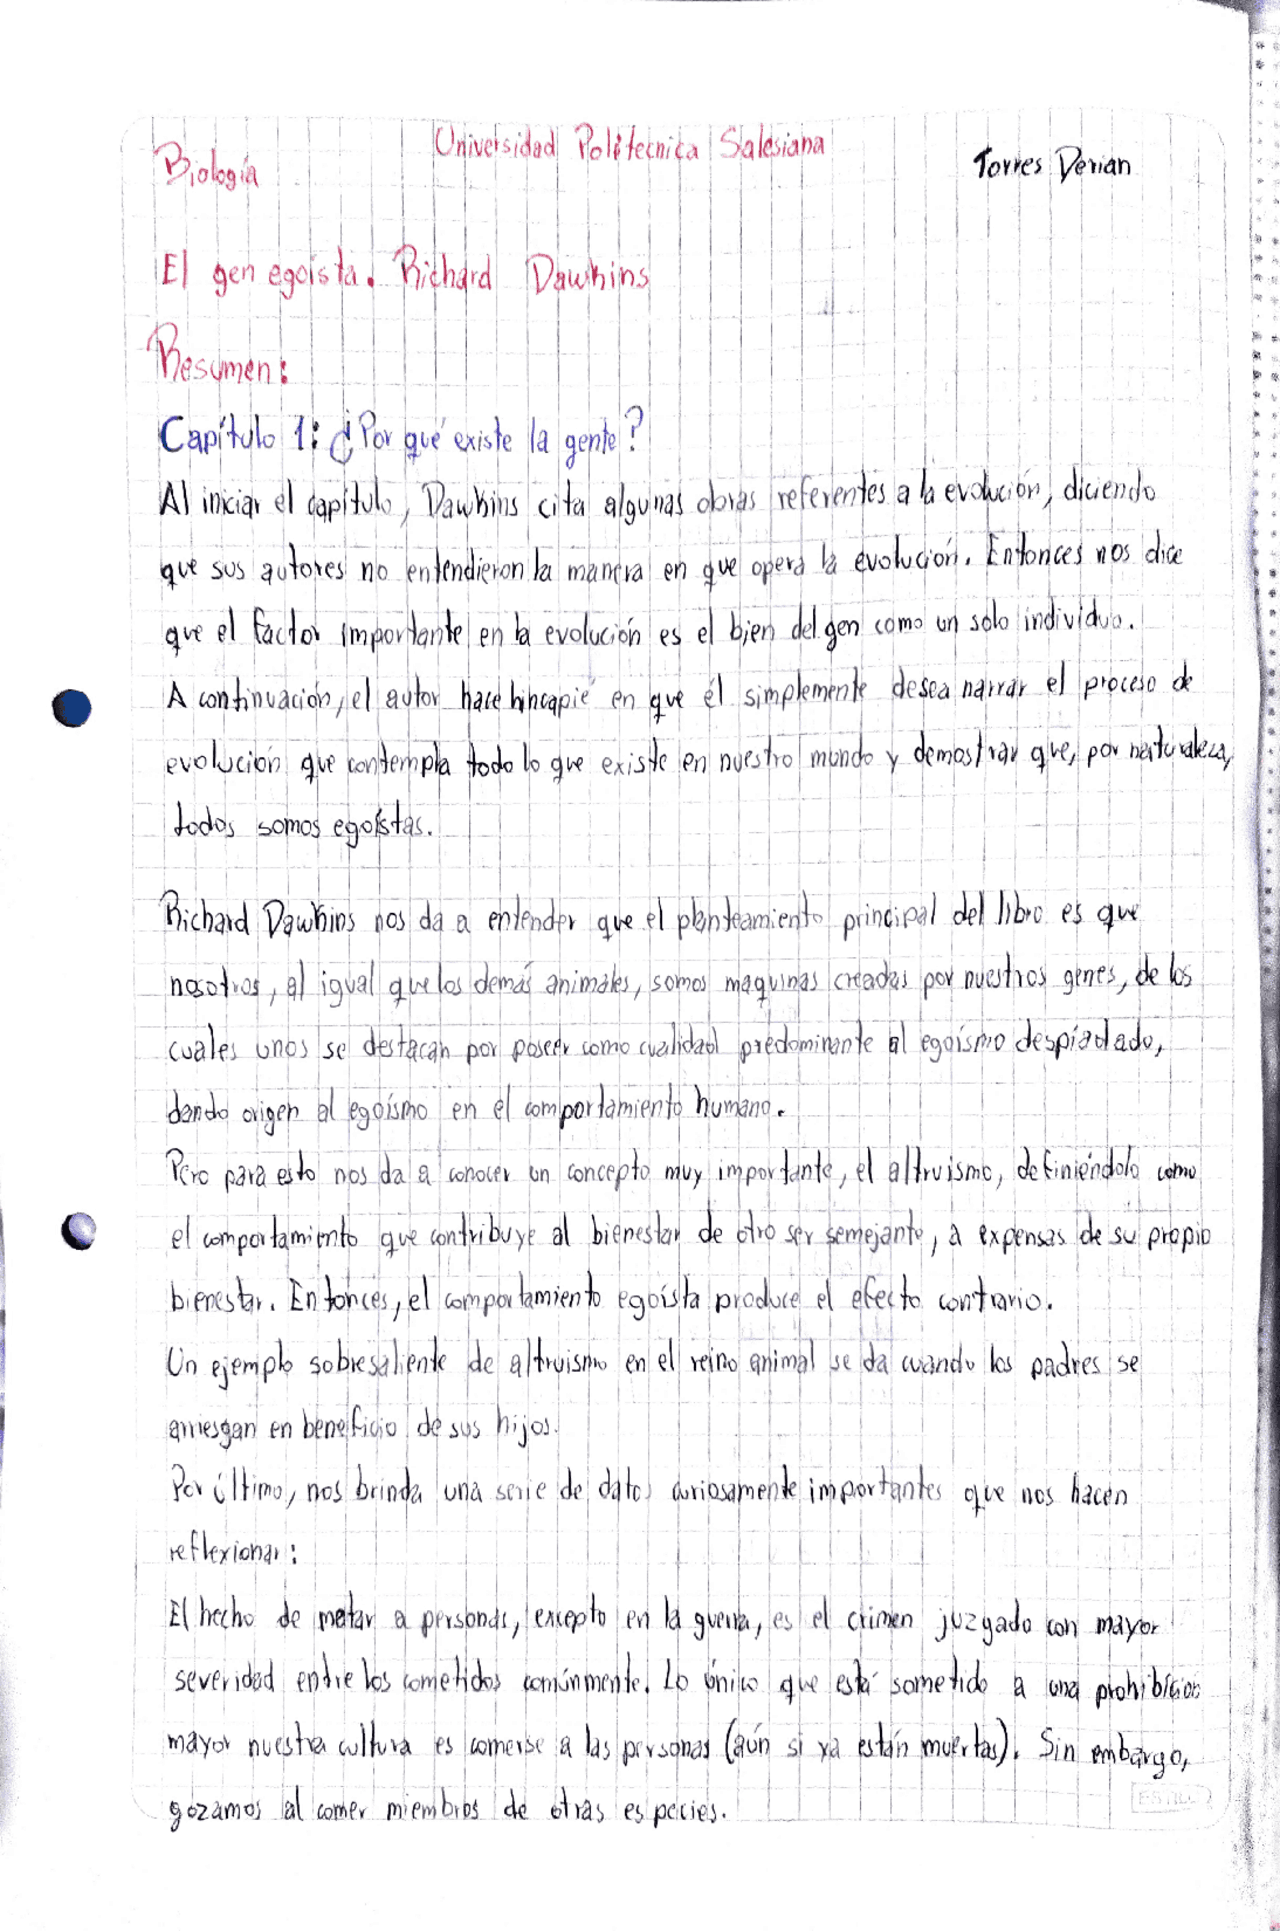 Universidad Politecnica Salesiana
Biología
Torres Derian
El gen egoísta. Richard Dawkins
Resumen:
Capítulo 1: ¿Por qué existe la gente?
Al iniciar el capítulo, Dawkins cita algunas obras referentes a la evolución, diciendo
que sus autores no entendieron la manera en que opera la evolución. Entonces nos dice
que el factor importante en la evolución es el bien del gen como un solo individuo.
A continuación, el autor hace hincapié en que él simplemente desea narrar el proceso de
evolución que contempla todo lo que existe en nuestro mundo y demostrar que, por naturaleza,
todos somos egoístas.
Richard Dawkins nos da a entender que el planteamiento principal del libro es que
nosotros, al igual que los demás animales, somos maquinas creadas por nuestros genes, de los
cuales unos se destacan por poseer como cualidad predominante al egoísmo despiadado,
dando origen al egoísmo en el comportamiento humano.
Pero para esto nos da a conocer un concepto muy importante, el altruismo, definiéndolo como
el comportamiento que contribuye al bienestar de otro ser semejante, a expensas de su propio
bienestar. Entonces, el comportamiento egoísta produce el efecto contrario.
Un ejemplo sobresaliente de altruismo en el reino animal se da cuando los padres se
arriesgan en beneficio de sus hijos.
Por último, nos brinda una serie de datos curiosamente importantes que nos hacen
reflexionar:
El hecho de matar a personas, excepto en la guerra, es el crimen juzgado con mayor
severidad entre los cometidos comúnmente. Lo único que está sometido a una prohibición
mayor nuestra cultura es comerse a las personas (aún si ya están muertas). Sin embargo,
gozamos al comer miembros de otras especies.